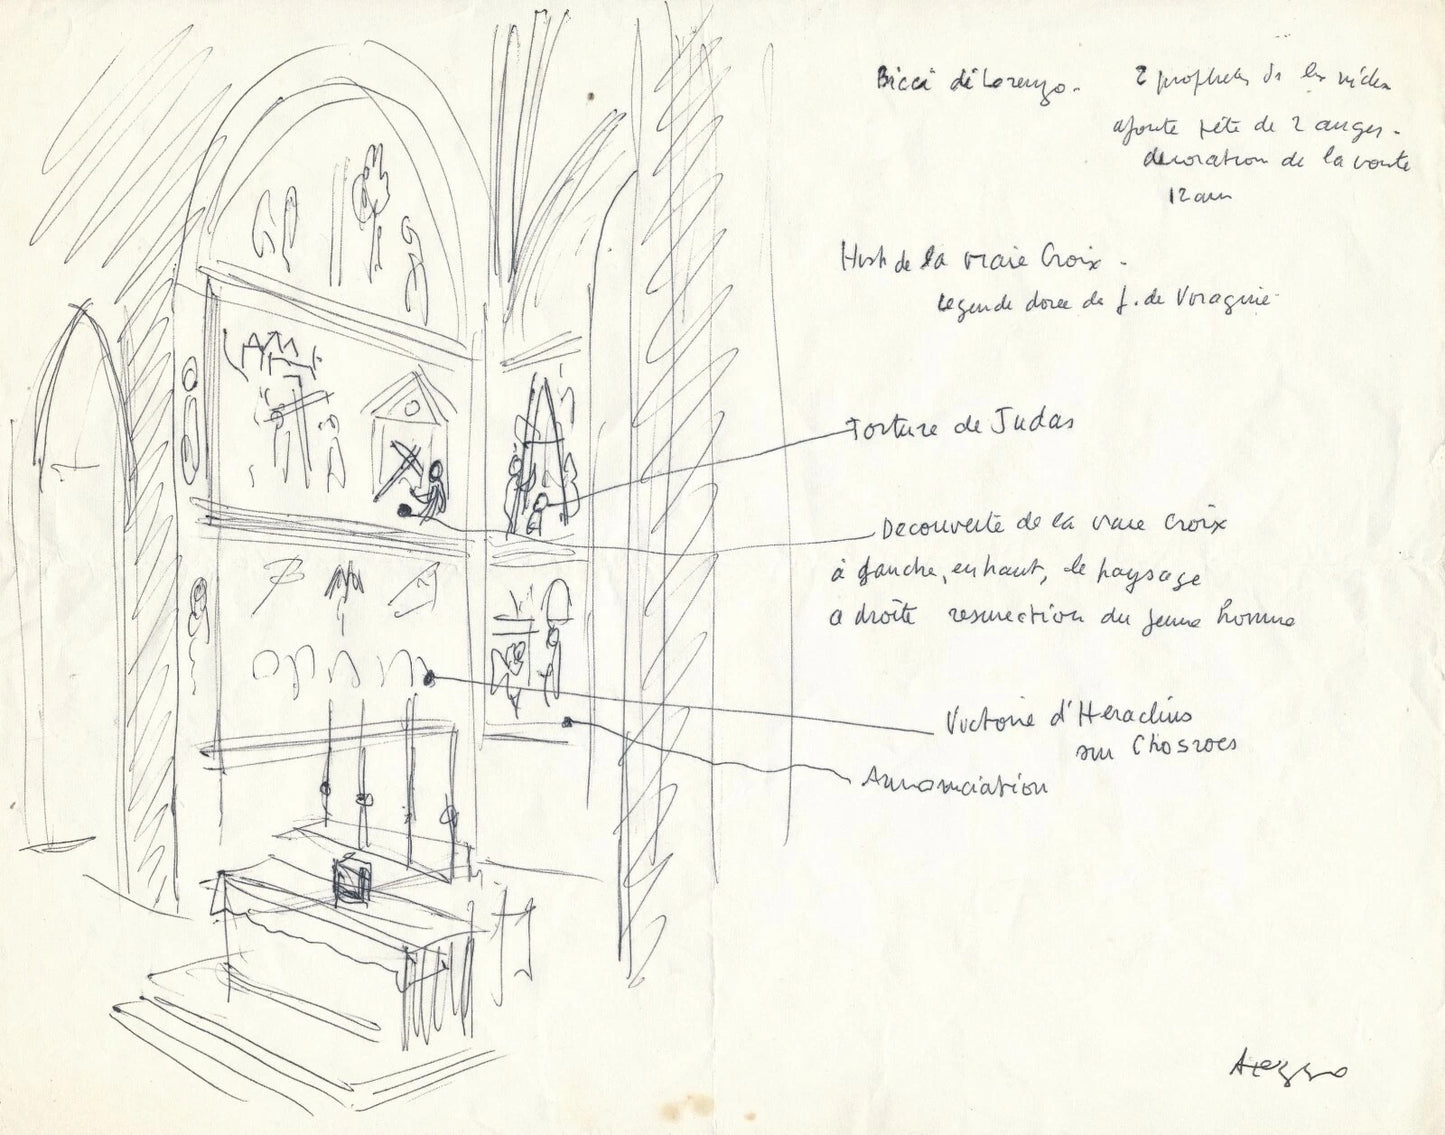 Bicci di Lorenzo.
2 prophetes ds les
ajoute tête de 2 anges.
decoration de la voute
12 ans
Hist de la vraie Croix.
legende doree de J. de Voragine
Torture de Judas
Decouverte de la vraie croix
à gauche, en haut, le paysage
a droite resurrection du jeune homme
Victoire d'Heraclius
sur Chosroes
Annonciation
Arezzo